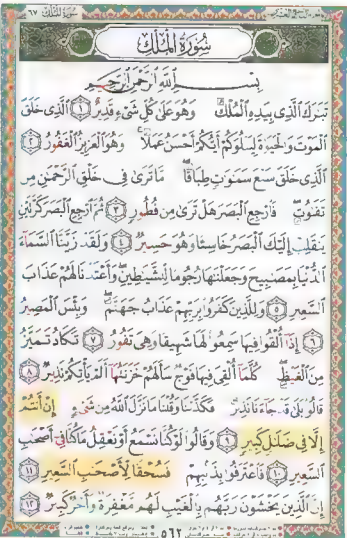 سُورَةُ الْمُلْكِ
بِسْمِ اللَّهِ الرَّحْمَٰنِ الرَّحِيمِ
تَبَٰرَكَ الَّذِى بِيَدِهِ الْمُلْكُ وَهُوَ عَلَىٰ كُلِّ شَىْءٍ قَدِيرٌ ١ الَّذِى خَلَقَ
الْمَوْتَ وَالْحَيَوٰةَ لِيَبْلُوَكُمْ أَيُّكُمْ أَحْسَنُ عَمَلًا وَهُوَ الْعَزِيزُ الْغَفُورُ ٢
الَّذِى خَلَقَ سَبْعَ سَمَٰوَٰتٍ طِبَاقًا مَّا تَرَىٰ فِى خَلْقِ الرَّحْمَٰنِ مِن
تَفَٰوُتٍ فَارْجِعِ الْبَصَرَ هَلْ تَرَىٰ مِن فُطُورٍ ٣ ثُمَّ ارْجِعِ الْبَصَرَ كَرَّتَيْنِ
يَنقَلِبْ إِلَيْكَ الْبَصَرُ خَاسِئًا وَهُوَ حَسِيرٌ ٤ وَلَقَدْ زَيَّنَّا السَّمَآءَ
الدُّنْيَا بِمَصَٰبِيحَ وَجَعَلْنَٰهَا رُجُومًا لِّلشَّيَٰطِينِ وَأَعْتَدْنَا لَهُمْ عَذَابَ
السَّعِيرِ ٥ وَلِلَّذِينَ كَفَرُوا بِرَبِّهِمْ عَذَابُ جَهَنَّمَ وَبِئْسَ الْمَصِيرُ
٦ إِذَآ أُلْقُوا فِيهَا سَمِعُوا لَهَا شَهِيقًا وَهِىَ تَفُورُ ٧ تَكَادُ تَمَيَّزُ
مِنَ الْغَيْظِ كُلَّمَآ أُلْقِىَ فِيهَا فَوْجٌ سَأَلَهُمْ خَزَنَتُهَآ أَلَمْ يَأْتِكُمْ نَذِيرٌ ٨
قَالُوا بَلَىٰ قَدْ جَآءَنَا نَذِيرٌ فَكَذَّبْنَا وَقُلْنَا مَا نَزَّلَ اللَّهُ مِن شَىْءٍ إِنْ أَنتُمْ
إِلَّا فِى ضَلَٰلٍ كَبِيرٍ ٩ وَقَالُوا لَوْ كُنَّا نَسْمَعُ أَوْ نَعْقِلُ مَا كُنَّا فِىٓ أَصْحَٰبِ
السَّعِيرِ ١٠ فَاعْتَرَفُوا بِذَنۢبِهِمْ فَسُحْقًا لِّأَصْحَٰبِ السَّعِيرِ ١١
إِنَّ الَّذِينَ يَخْشَوْنَ رَبَّهُم بِالْغَيْبِ لَهُم مَّغْفِرَةٌ وَأَجْرٌ كَبِيرٌ ١٢
٥٦٢